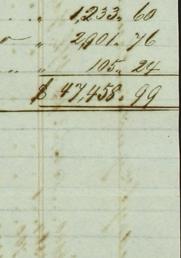 " 1,233.60
" 2,901.76
" 105.24
$ 47,458.99